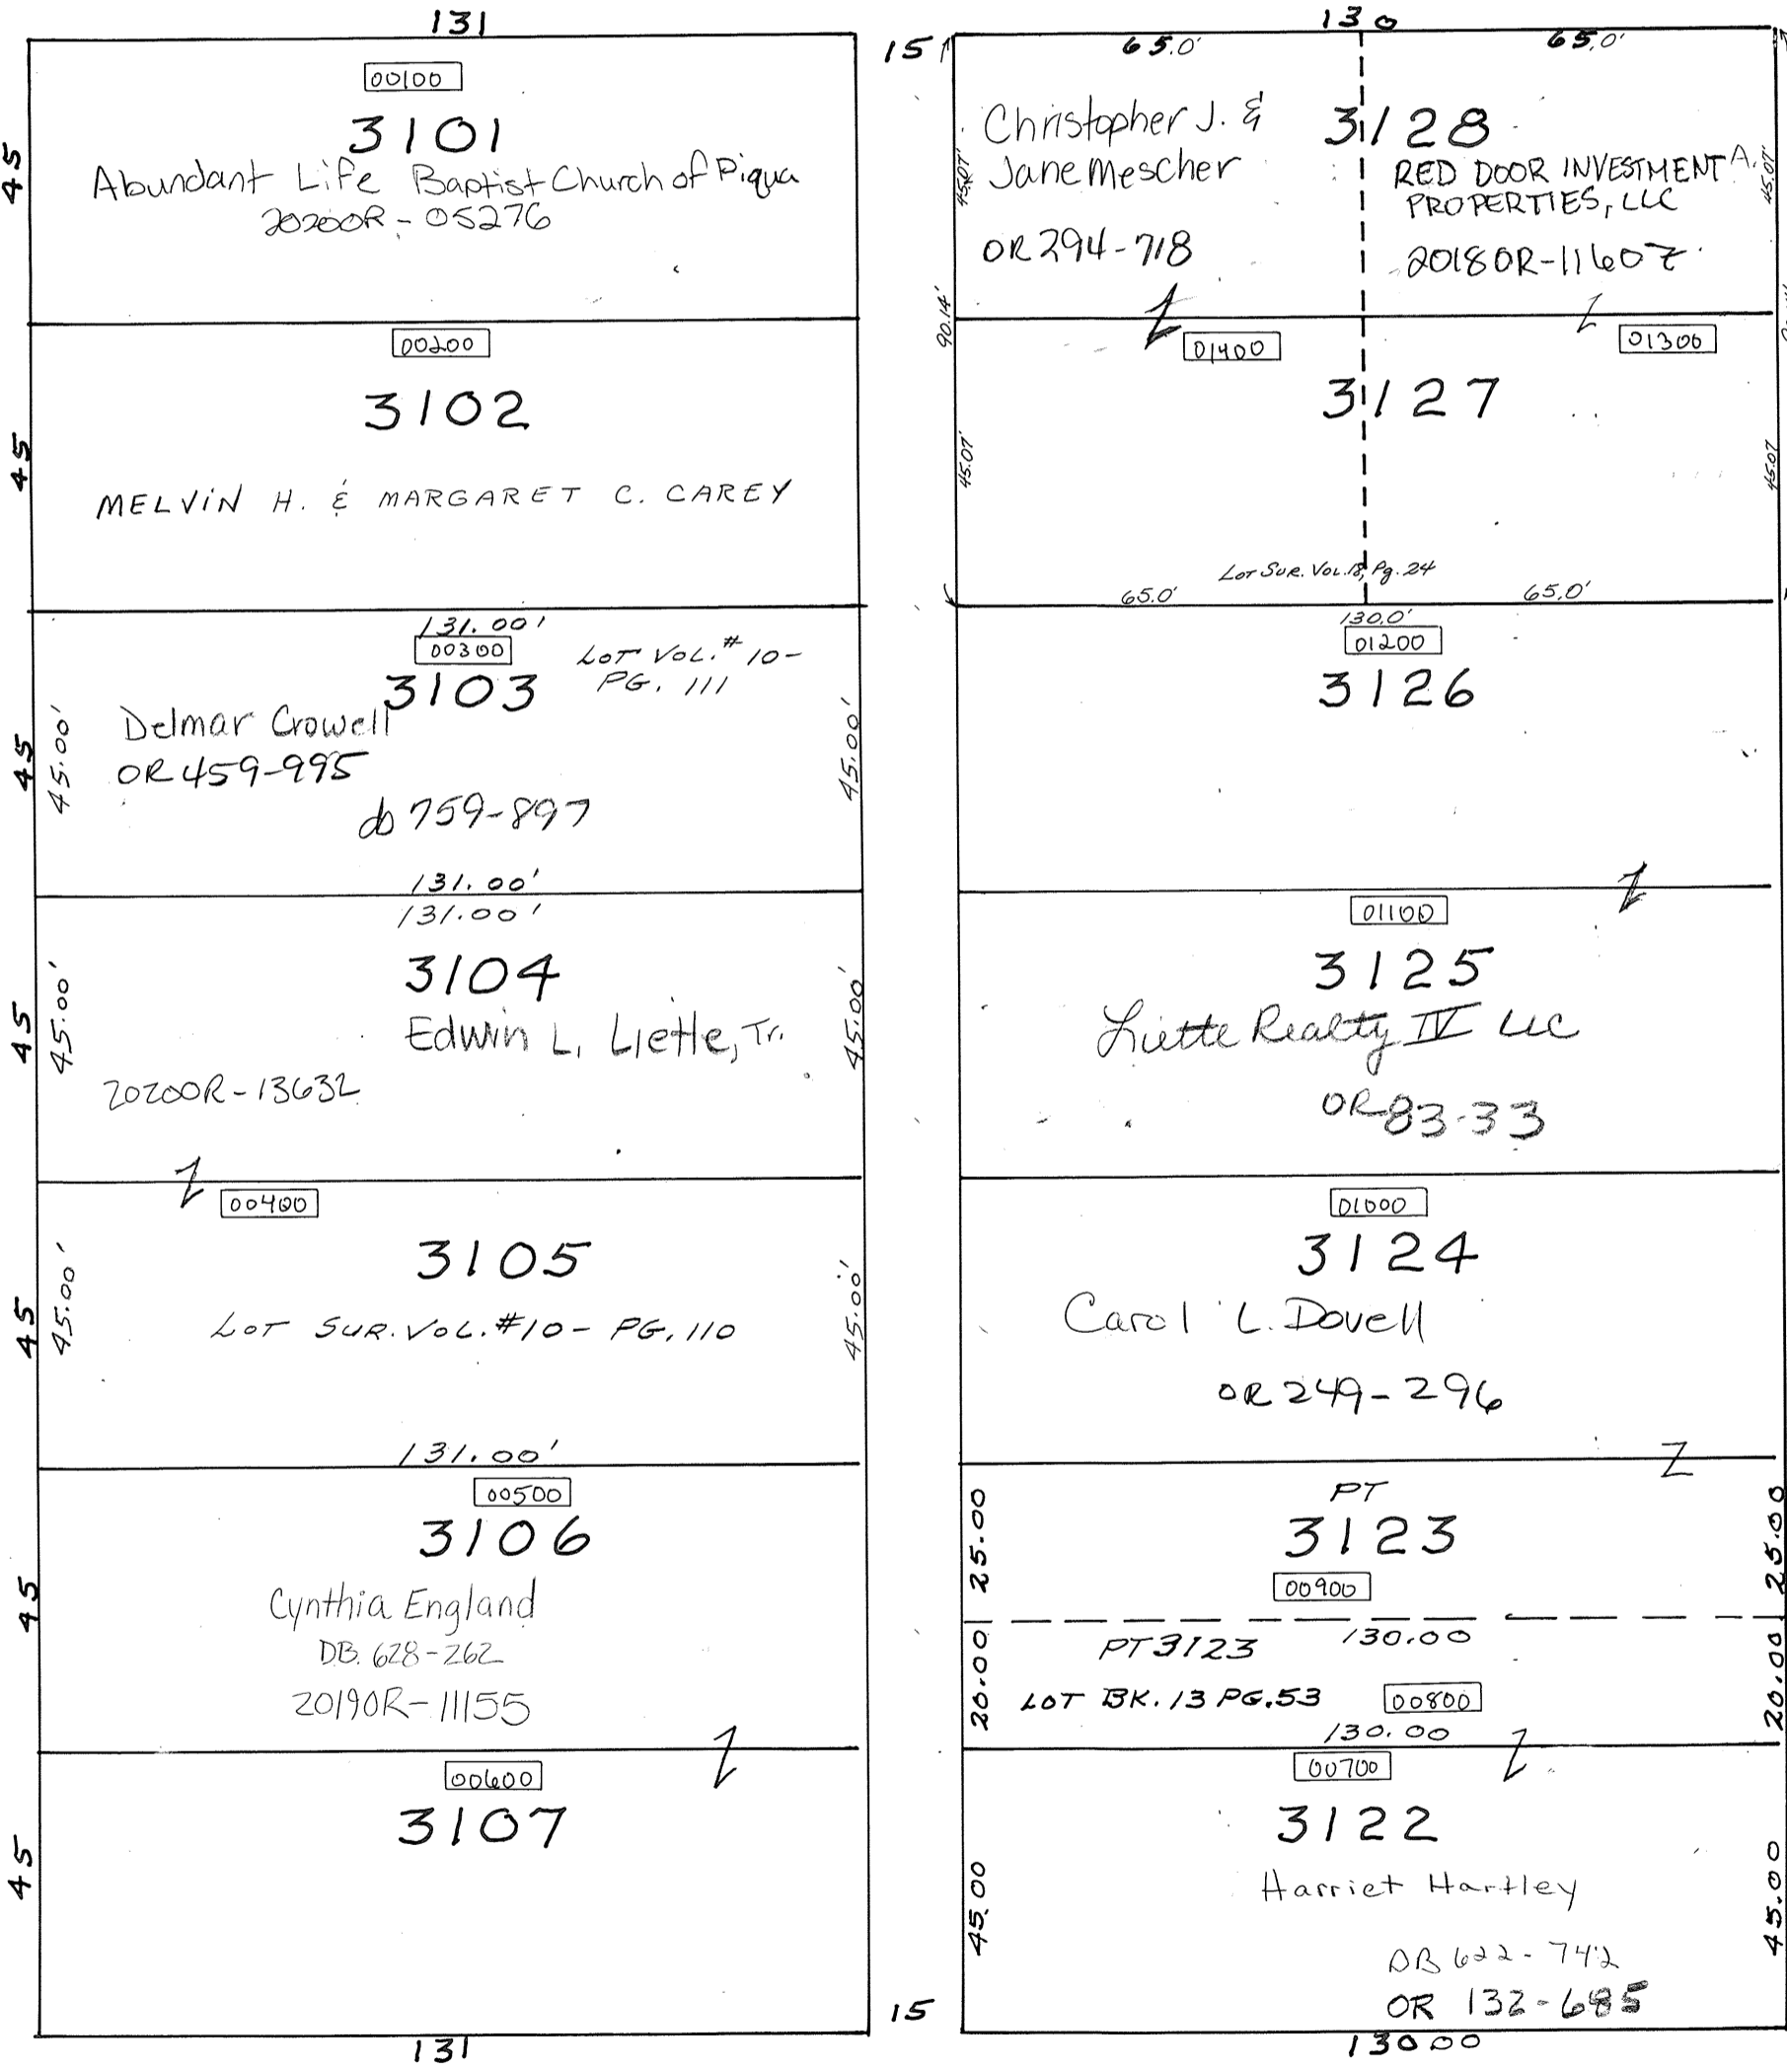 131
45
00100
3101
Abundant Life Baptist Church of Piqua
2020OR-05276
45
00200
3102
MELVIN H. & MARGARET C. CAREY
131.00'
00300
LOT VOL.# 10-
PG. 111
3103
45
45.00'
45.00'
Delmar Crowell
OR 459-995
db 759-897
131.00'
131.00'
3104
45
45.00'
45.00'
Edwin L. Liette, Tr.
2020OR-13632
00400
3105
45
45.00'
45.00'
LOT SUR. VOL. #10- PG. 110
131.00'
00500
3106
45
Cynthia England
DB. 628-262
2019OR-11155
00600
3107
45
131
15
15
130
65.0'
65.0'
Christopher J. &
Jane Mescher
OR 294-718
3128
RED DOOR INVESTMENT A.
PROPERTIES, LLC
2018OR-11607
45.07'
45.07'
90.14'
01400
01300
3127
45.07'
45.07
Lot Sur. Vol. 18, Pg. 24
65.0'
65.0'
130.0'
01200
3126
01100
3125
Liette Realty IV LLC
OR 83-33
01000
3124
Carol L. Dovell
OR 249-296
PT
3123
25.00
25.00
00900
PT 3123
130.00
20.00
20.00
LOT BK. 13 PG. 53
00800
130.00
00700
3122
45.00
45.00
Harriet Hartley
DB 622-742
OR 132-685
130.00